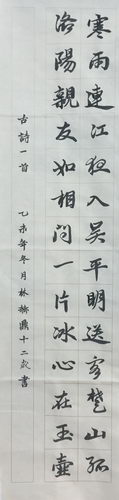 寒雨連江夜入吳平明送客楚山孤
洛陽親友如相問一片冰心在玉壺
古詩一首 乙未年冬月林十二歲書